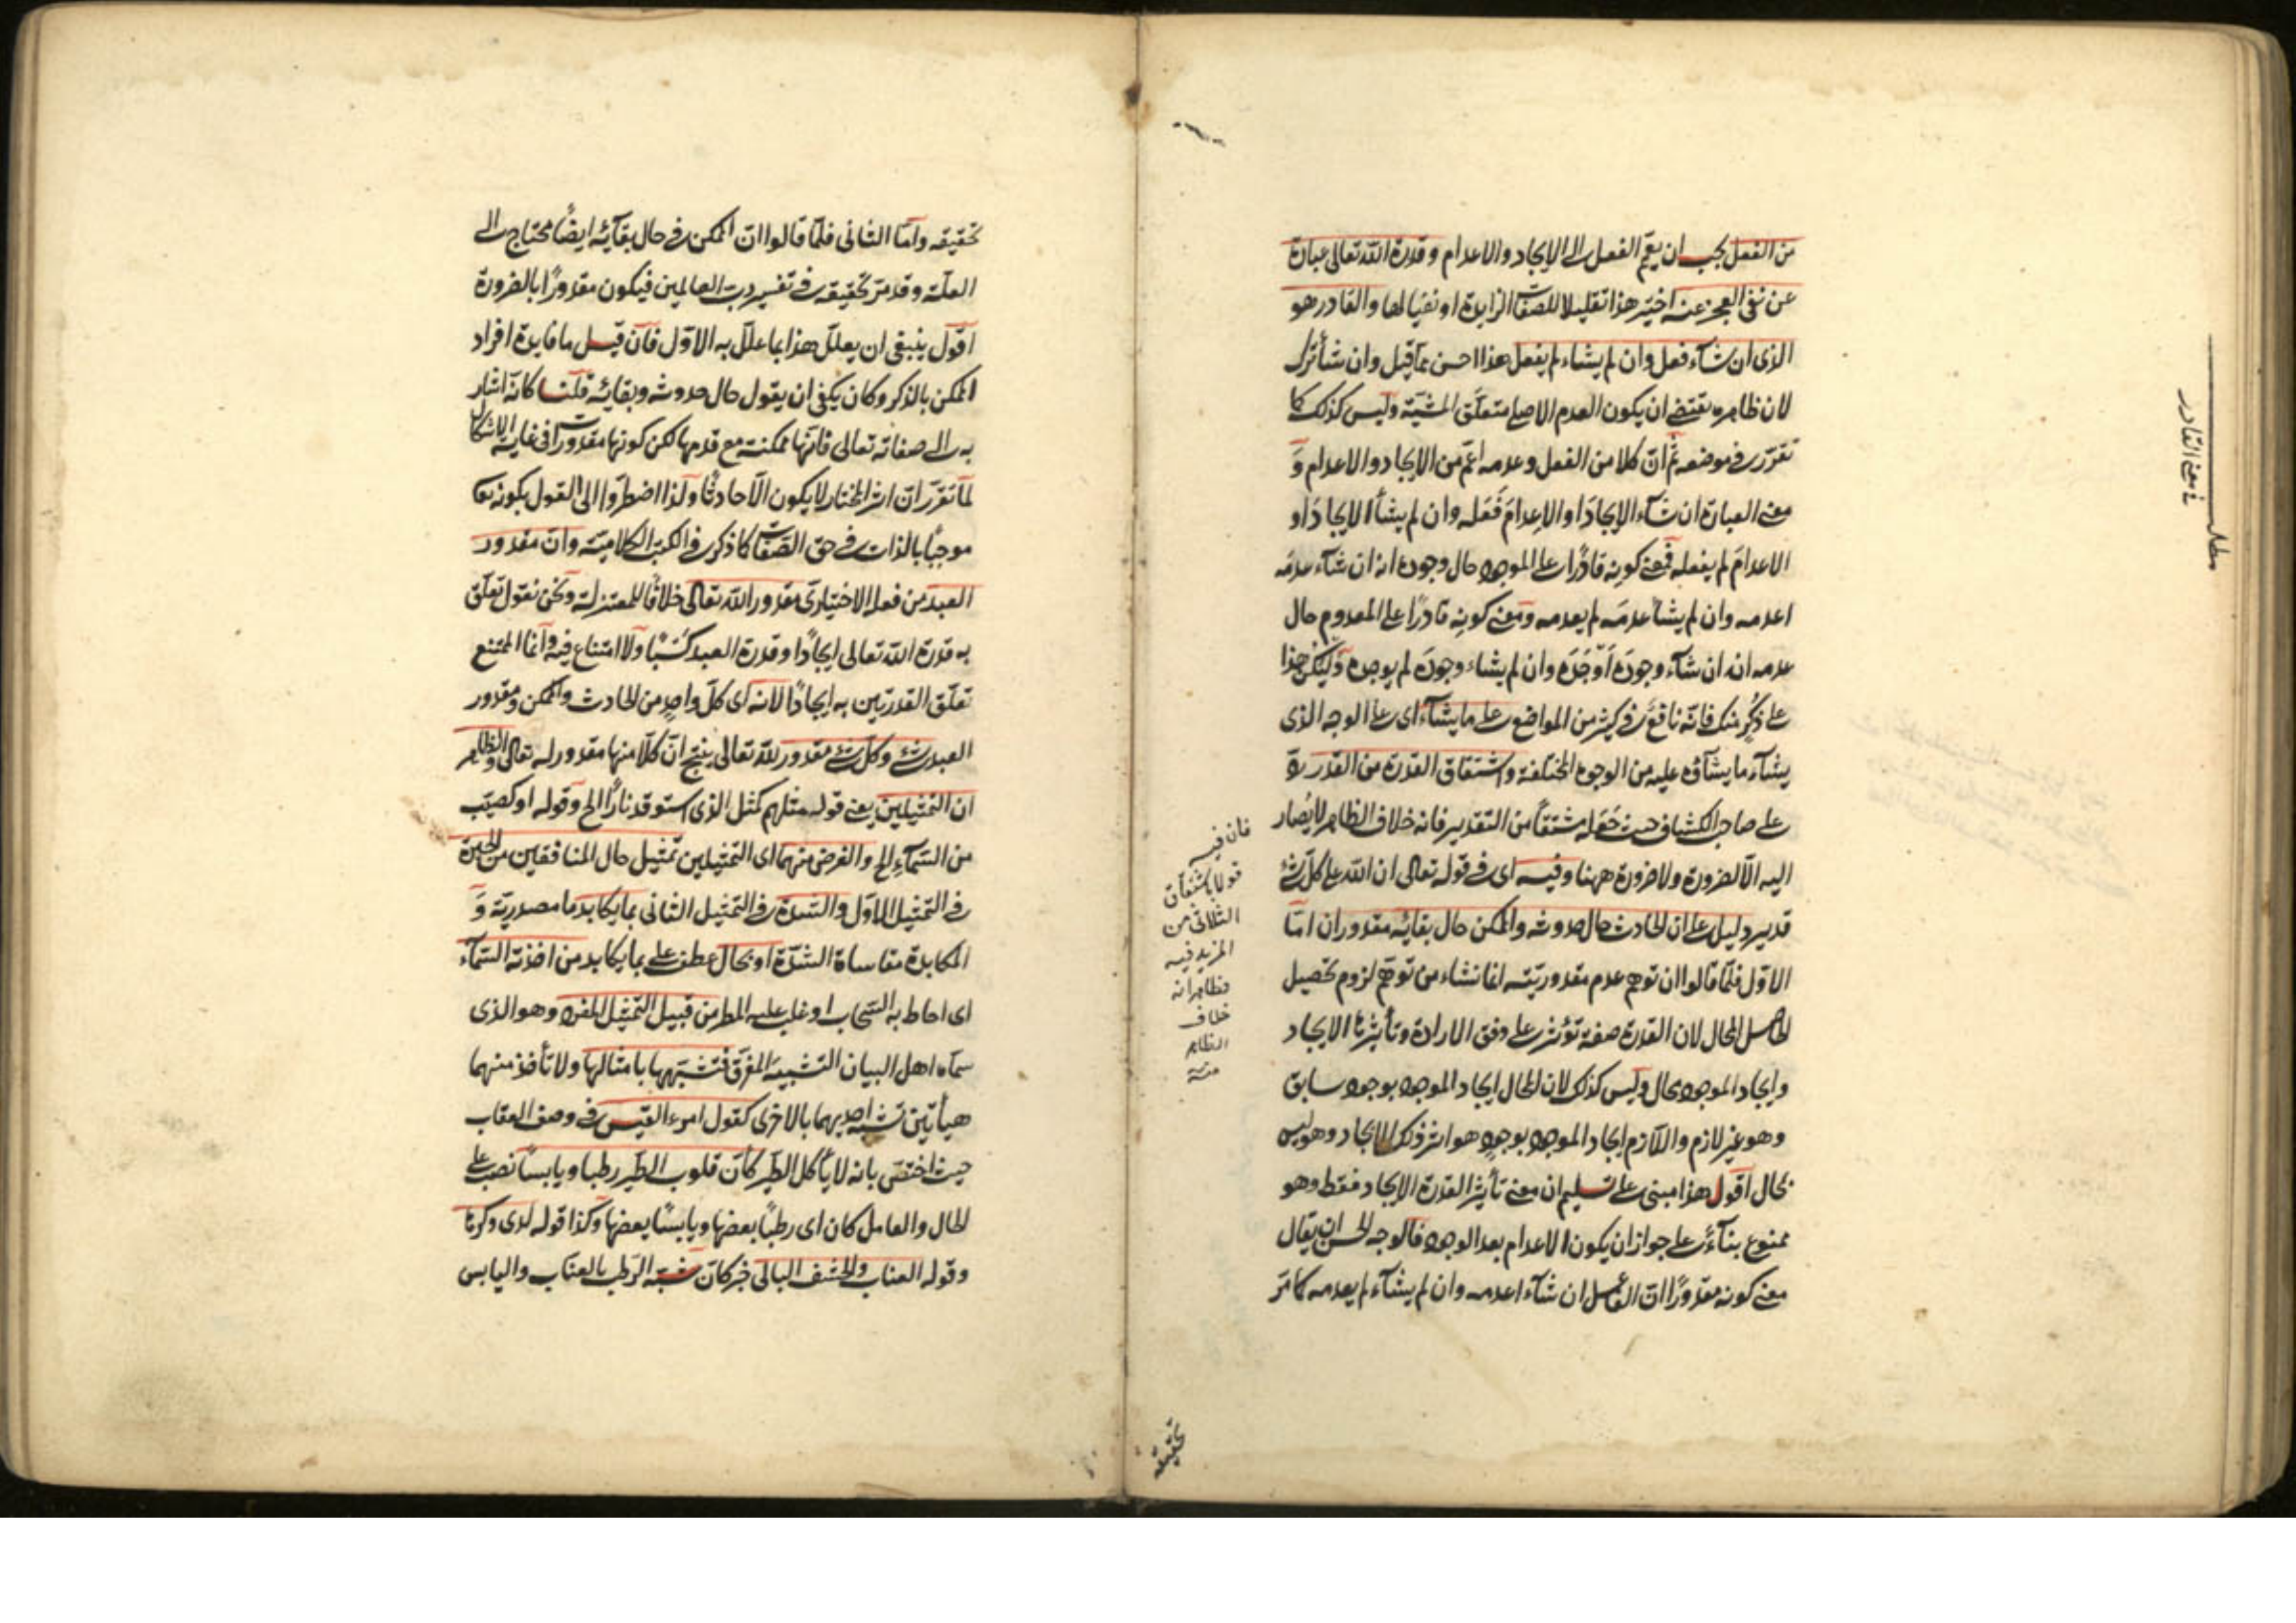 من الفعل يجب ان يعم الفعل الى الايجاد والاعدام وقدرة الله تعالى عبارة
عن نفى العجز عنه اخير هذا تقليلا للصفات الزايدة او نفيا لها والقادر هو
الذى ان شآء فعل وان لم يشاء لم يفعل هذا احسن مما قيل وان شآء ترك
لان ظاهره يقتضى ان يكون العدم الاصلى متعلق المشية وليس كذلك كما
تقرر فى موضعه ثم ان كلا من الفعل وعدمه اعم من الايجاد والاعدام و
معنى العبارة ان شآء الايجاد او الاعدام فعله وان لم يشأ الايجاد او
الاعدام لم يفعله فمعنى كونه قادرا على الموجود حال وجوده انه ان شآء عدمه
اعدمه وان لم يشأ عدمه لم يعدمه ومعنى كونه قادرا على المعدوم حال
عدمه انه ان شآء وجوده اوجده وان لم يشاء وجوده لم يوجده وليكن هذا
على ذكر منك فانه نافع فى كثير من المواضع على ما يشآء اى على الوجه الذى
يشآء ما يشآؤه عليه من الوجوه المختلفة واشتقاق القدرة من القدر رد
على صاحب الكشاف حيث جعله مشتقا من التقدير فانه خلاف الظاهر لا يصار
اليه الا لضرورة ولا ضرورة ههنا وفيه اى فى قوله تعالى ان الله على كل شئ
قدير دليل على ان الحادث حال حدوثه والممكن حال بقائه مقدوران اما
الاول فلما قالوا ان توهم عدم مقدوريته انما نشاء من توهم لزوم تحصيل
الحاصل المحال لان القدرة صفة تؤثر على وفق الارادة وتأثيرها الايجاد
وايجاد الموجود محال وليس كذلك لان المحال ايجاد الموجود بوجود سابق
وهو غير لازم واللازم ايجاد الموجود بوجود هو اثر ذلك الايجاد وهو ليس
بمحال اقول هذا مبنى على تسليم ان معنى تأثير القدرة الايجاد فقط وهو
ممنوع بنآء على جواز ان يكون الاعدام بعد الوجود فالوجه الحسن ان يقال
معنى كونه مقدورا ان الفاعل ان شآء اعدمه وان لم يشآء لم يعدمه كما مر
مطلب
فى معنى القادر
فان فيه
قولا باشتقاق
الثلاثى من
المزيد فيه
فظاهر انه
خلاف
الظاهر
منه
تحقيقه
تحقيقه واما الثانى فلما قالوا ان الممكن فى حال بقآئه ايضا محتاج الى
العلة وقد مر تحقيقه فى تفسير رب العالمين فيكون مقدورا بالضرورة
اقول ينبغى ان يعلل هذا بما علل به الاول فان قيل ما فايدة افراد
الممكن بالذكر وكان يكفى ان يقول حال حدوثه وبقائه قلنا كانه اشار
به الى صفاته تعالى فانها ممكنة مع قدمها لكن كونها مقدورات فى غاية الاشكال
لما تقرر ان اثر المختار لا يكون الا حادثا ولذا اضطروا الى القول بكونه تعا
موجبا بالذات فى حق الصفات كما ذكر فى الكتب الكلامية وان مقدور
العبد من فعله الاختيارى مقدور الله تعالى خلافا للمعتزلة ونحن نقول تعلق
به قدرة الله تعالى ايجادا وقدرة العبد كسبا ولا امتناع فيه وانما الممتنع
تعلق القدرتين به ايجادا لانه اى كل واحد من الحادث والممكن ومقدور
العبد شئ وكل شئ مقدور لله تعالى ينتج ان كلا منها مقدور له تعالى والظاهر
ان التمثيلين يعنى قوله مثلهم كمثل الذى استوقد نارا الخ وقوله او كصيب
من السمآء الخ والغرض منهما اى التمثيلين تمثيل حال المنافقين من الحيرة
فى التمثيل الاول والشدة فى التمثيل الثانى بما يكابد ما مصدرية و
المكابدة مقاساة الشدة او بحال عطف على بما يكابد من اخذته السمآء
اى احاط به السحاب او غلب عليه المطر من قبيل التمثيل المفرد وهو الذى
سماه اهل البيان التشبيه المفرق فتشبهها بامثالها ولا تأخذ منهما
هيأتين تشبه احديهما بالاخرى كقول امرء القيس فى وصف العقاب
حيث اختص بانه لا يأكل الطير كأن قلوب الطير رطبا ويابسا نصب على
الحال والعامل كان اى رطبا بعضها ويابسا بعضها وكذا قوله لدى وكرها
وقوله العناب والحشف البالى خبر كان شبه الرطب بالعناب واليابس